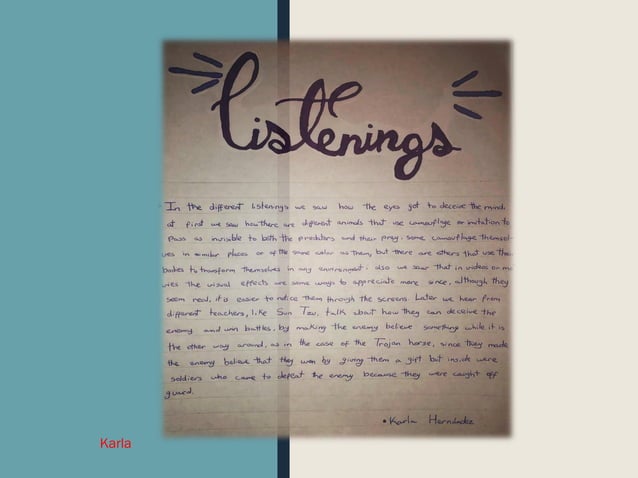 Listenings
In the different listenings we saw how the eyes got to deceive the mind,
at first we saw how there are different animals that use camouflage or imitation to
pass as invisible to both the predators and their prey. some camouflage themsel-
ves in similar places or of the same color as them, but there are others that use their
bodies to transform themselves in any environment. also we saw that in videos or mo
vies the visual effects are some ways to appreciate more since, although they
seem real, it is easier to notice them through the screens. Later we hear from
different teachers, like Sun Tzu, talk about how they can deceive the
enemy and win battles, by making the enemy believe something while it is
the other way around, as in the case of the Trojan horse, since they made
the enemy believe that they won by giving them a gift but inside were
soldiers who came to defeat the enemy because they were caught off
guard.
•Karla Hernández
Karla